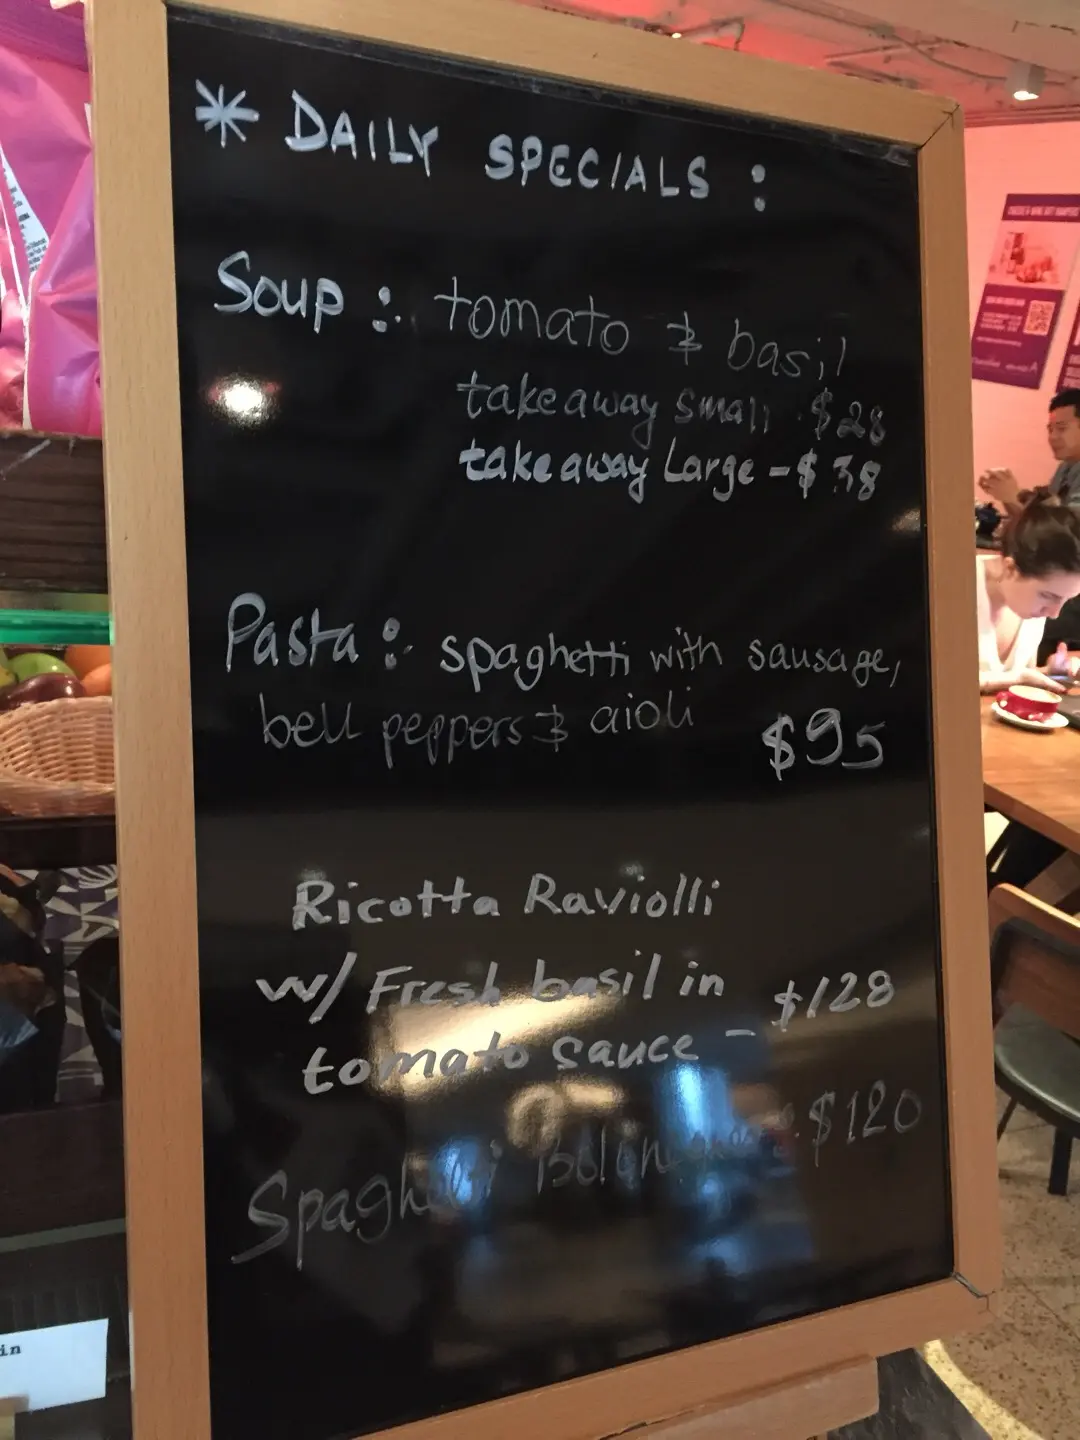 * DAILY SPECIALS :
Soup : tomato & basil
takeaway small - $28
takeaway Large - $38
Pasta : spaghetti with sausage,
bell peppers & aioli $95
Ricotta Raviolli
w/ Fresh basil in $128
tomato sauce -
Spaghetti $120
in